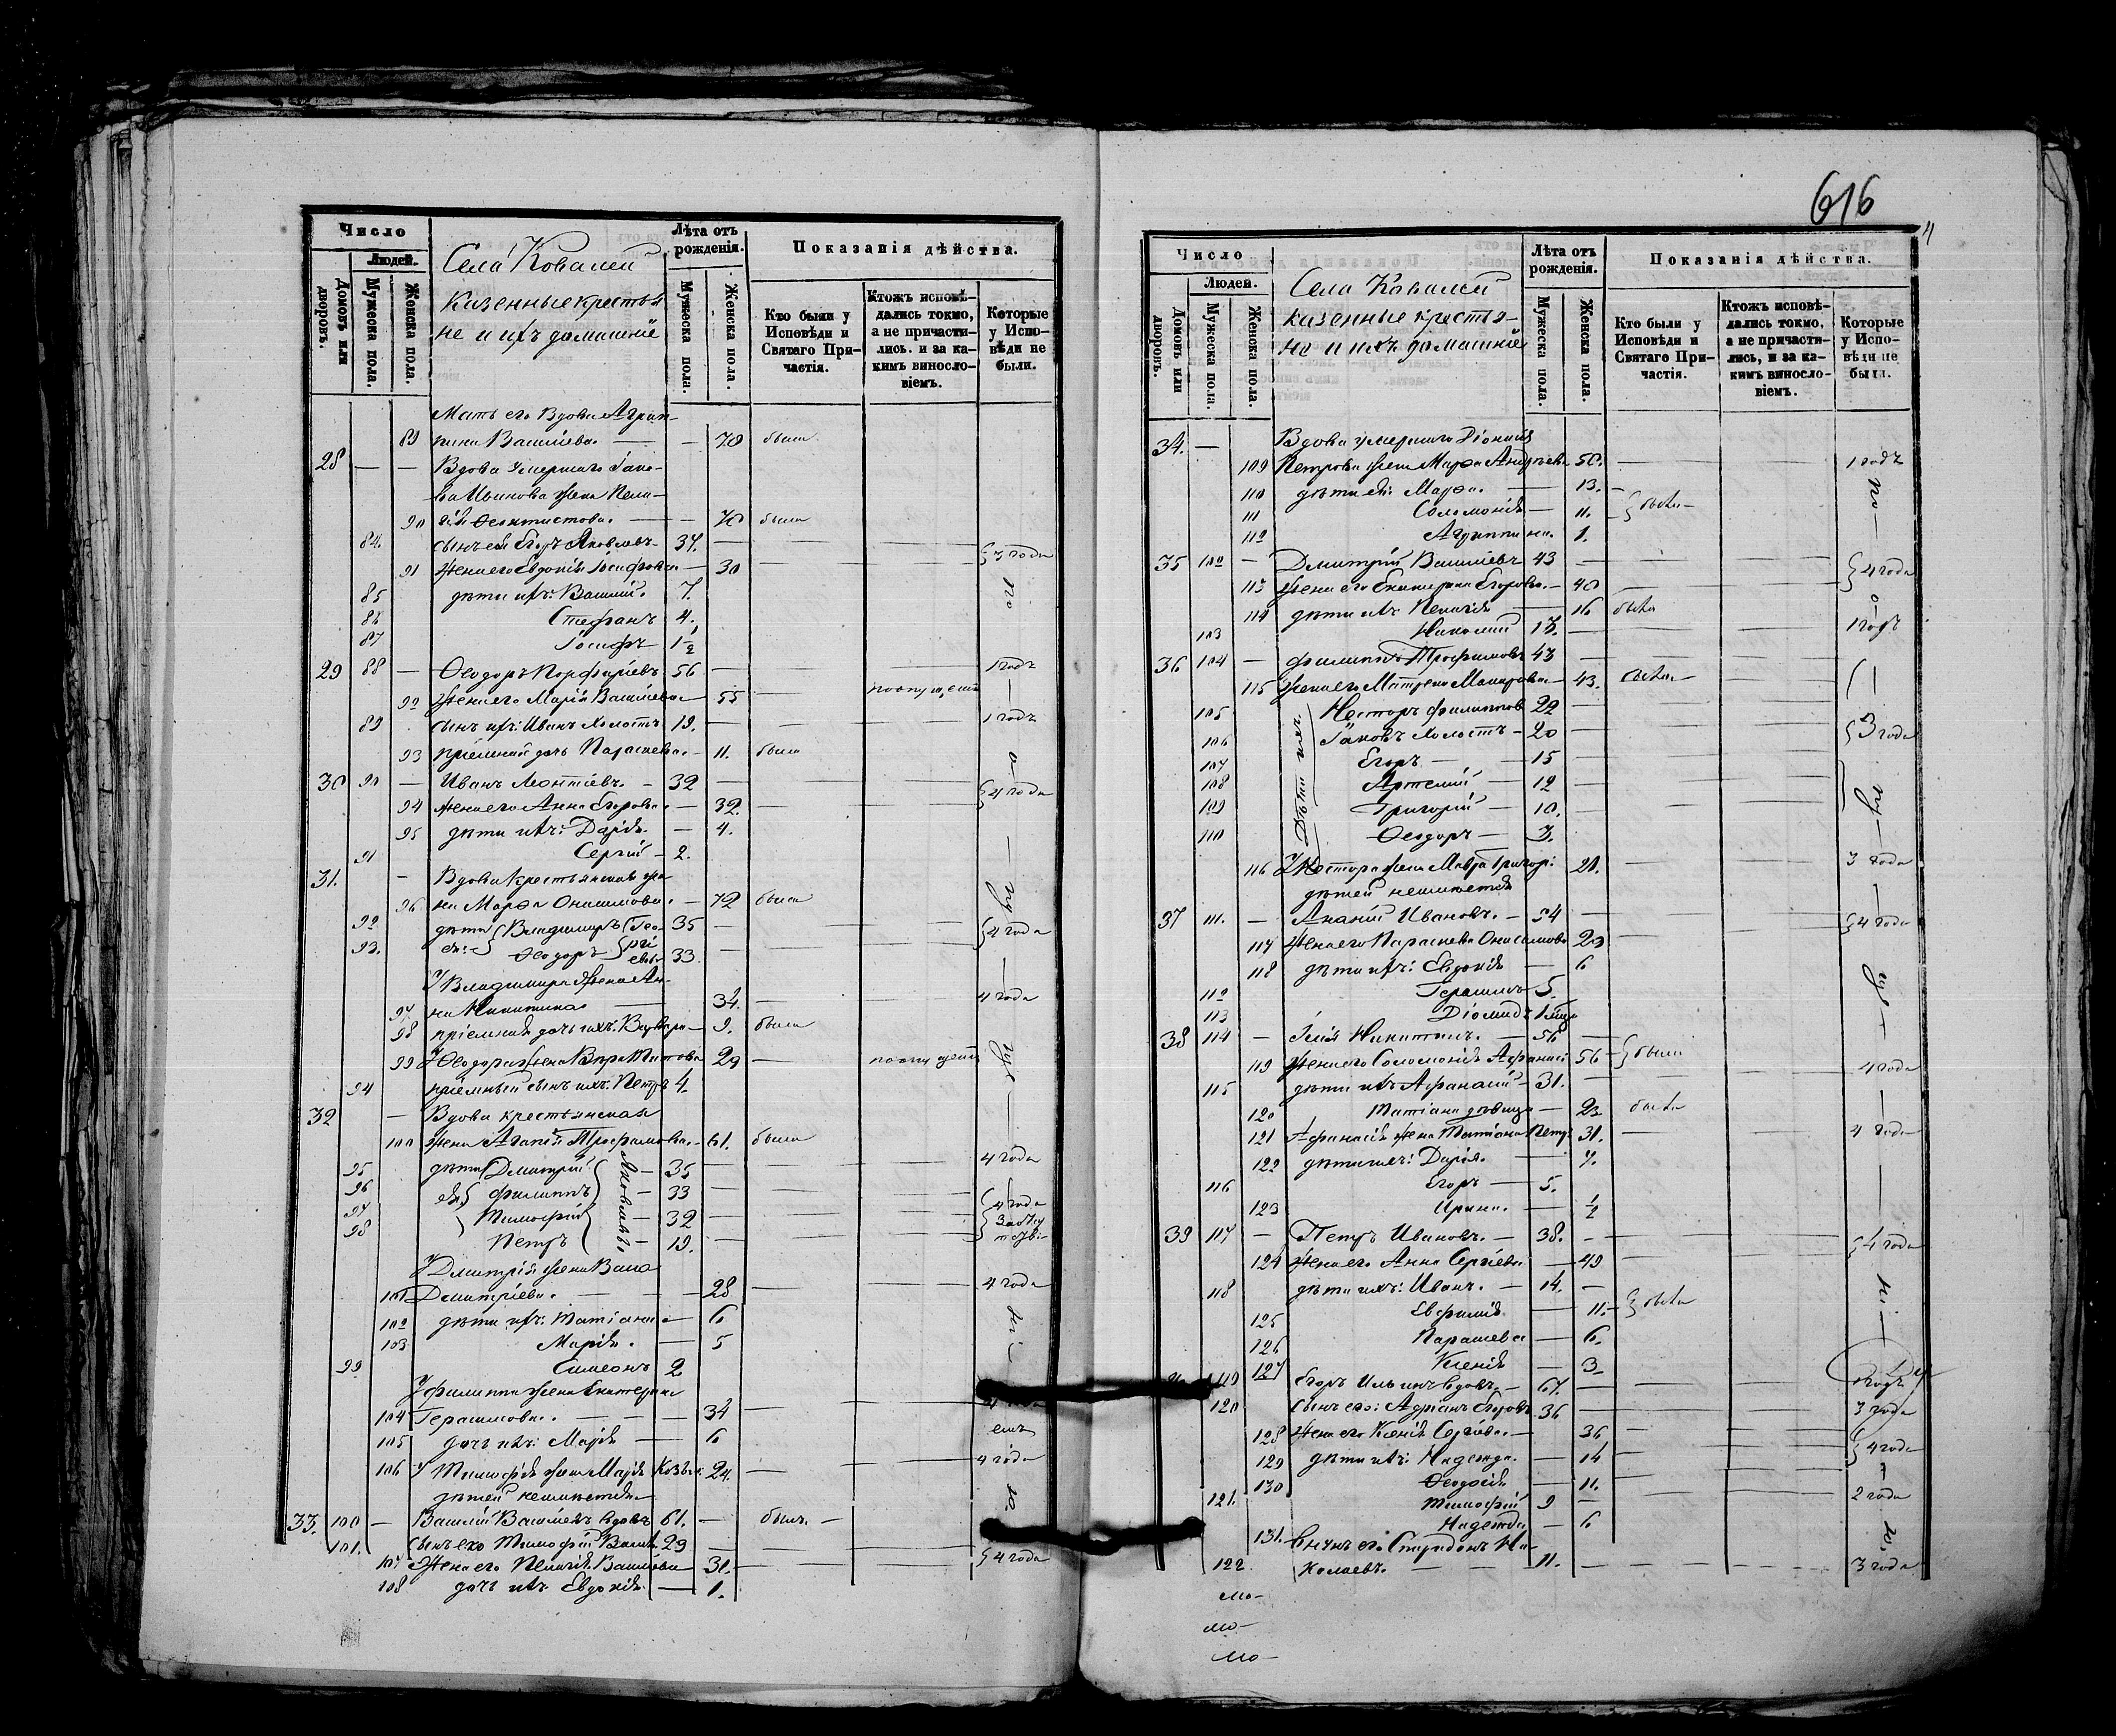 Число
Людей.
Домовъ или дворовъ.
Мужеска пола.
Женска пола.
Села Ковалей
казенные крестья
не и ихъ домашніе
Лѣта отъ рожденія.
Мужеска пола.
Женска пола.
Показанія дѣйства.
Кто были у Исповѣди и Святаго Причастія.
Ктожъ исповѣдались токмо, а не причастились. и за какимъ винословіемъ.
Которые у Исповѣди не были.
Мать его Вдова Агрип-
89 пина Васильева. — — 70 была
28 — — Вдова умершаго Іако-
ва Иванова жена Пела-
90 гія Феоктистова. — — 70 была
84. сынъ ея Егоръ Яковлевъ 37. — —
91 Жена его Евдокія Іосифова — 30 — — 3 года
85 дѣти ихъ: Василій. 7.
86 Стефанъ 4.
87 Іосифъ 1 1/2
29 88 — Феодоръ Порфиріевъ 56 — — 1 годъ
92 Жена его Марія Васильева — 55 —
89 сынъ ихъ: Иванъ холостъ 19. — — 1 годъ
93 пріемная дочь Параскева. — 11. была
30 90 — Иванъ Леонтіевъ. — 32 — — 4 года
94 жена его Анна Егорова. — 32. — —
95 дѣти ихъ: Дарія. — 4.
91 Сергій — 2.
31. — Вдова крестьянская же
96 на Марѳа Онисимова. — 72 была
92 дѣти Владимиръ Гео- 35 — — 4 года
93. ея: Феодоръ ргі евы 33. — —
У Владимира жена Ан-
97 на Никитина — 34. — — 4 года
98 пріемная дочь ихъ: Варвара — 9. была
99 У Феодора жена Вѣра Титова 29 —
94 пріемный сынъ ихъ: Петръ 4.
32 — Вдова крестьянская
100 жена Агапія Трофимова. — 61. была
95 дѣти Дмитрій — 35 — — 4 года
96 ея Филиппъ Яковлевы. — 33 — — 4 года
97 Тимофій — 32 — —
98 Петръ — 19. — —
У Дмитрія жена Васса
101 Дмитріева. — — 28 — — 4 года
102 дѣти ихъ: Татіана — 6
103 Марія. — 5
99 Симеонъ 2
У Филиппа жена Екатерина
104 Герасимова. — — — 34 — —
105 дочь ихъ: Марія — 6
106 У Тимофія жена Марія Козьм. 24. — — 4 года
дѣтей неимѣетъ
33. 100 — Василій Васильевъ вдовъ 61. — былъ. —
101. сынъ его Тимофій Васил. 29 — —
107 Жена его Пелагія Васильева — 31. — — 4 года
108 дочь ихъ Евдокія — 1.
616
Число
Людей.
Домовъ или дворовъ.
Мужеска пола.
Женска пола.
Села Ковалей
казенные крестья-
не и ихъ домашніе
Лѣта отъ рожденія.
Мужеска пола.
Женска пола.
Показанія дѣйства.
Кто были у Исповѣди и Святаго Причастія.
Ктожъ исповѣдались токмо, а не причастились, и за какимъ винословіемъ.
Которые у Исповѣди не были.
34. — Вдова умершаго Діонисія
109 Петрова жена Марѳа Андрѣева 50. — — 1 годъ
110 дѣти ея: Марѳа. — 13. —
111 Соломонія — 11. были —
112 Агриппина. 1.
35 102 — Дмитрій Васильевъ 43 — — 4 года
113 Жена его Екатерина Егорова. — 40 — —
114 дѣти ихъ Пелагія — 16 была
103 Николай 13. — — 1 годъ
36 104 — Филиппъ Трофимовъ 43 — —
115 жена его Матрена Макарова — 43. была —
105 Дѣти ихъ. Несторъ Филиппов 22 —
106 Іаковъ Холостъ — 20 — 3 года
107 Егоръ — 15 —
108 Артемій — 12 —
109 Григорій — 10. —
110 Феодоръ — 3.
116 У Нестора жена Мавра Григор: 21. — — 3 года
дѣтей неимѣетъ
37 111. — Ананій Ивановъ. — 54 — — 4 года
117 Жена его Параскева Онисимова 29 — —
118 дѣти ихъ: Евдокія — 6
112 Герасимъ 5.
113 Діомидъ
38 114 — Илія Никитинъ. — 56 —
119 Жена его Соломонія Афанасі 56 — были
115 дѣти ихъ Афанасій — 31. — — 4 года
120 Татіана дѣвица — 23. была
121 Афанасія жена Татіана Петр: 31. — — 4 года
122 дѣти ихъ: Дарія. — 7.
116 Егоръ — 5.
123 Ирина. — 1/2
39 117 — Петръ Ивановъ. — 38. — — 4 года
124 Жена его Анна Сергіева — 40 — —
118 дѣти ихъ: Иванъ. — 14. —
125 Евфимія. — 11. — были
126 Параскева — 6.
127 Ксенія — 3
119 Егоръ Ильинъ вдовъ. — 67. — —
120 сынъ его: Адріанъ Егоровъ 36 — — 3 года
128 Жена его Ксенія Сергіева. — 36 — — 4 года
129 дѣти ихъ: Надежда. — 14 — —
130 Феодосія — 11. — —
121. Тимофій 9 — — 2 года
131. Надежда — 6
Внукъ его Спиридонъ Ни-
122. колаевъ. — — 11. — — 3 года